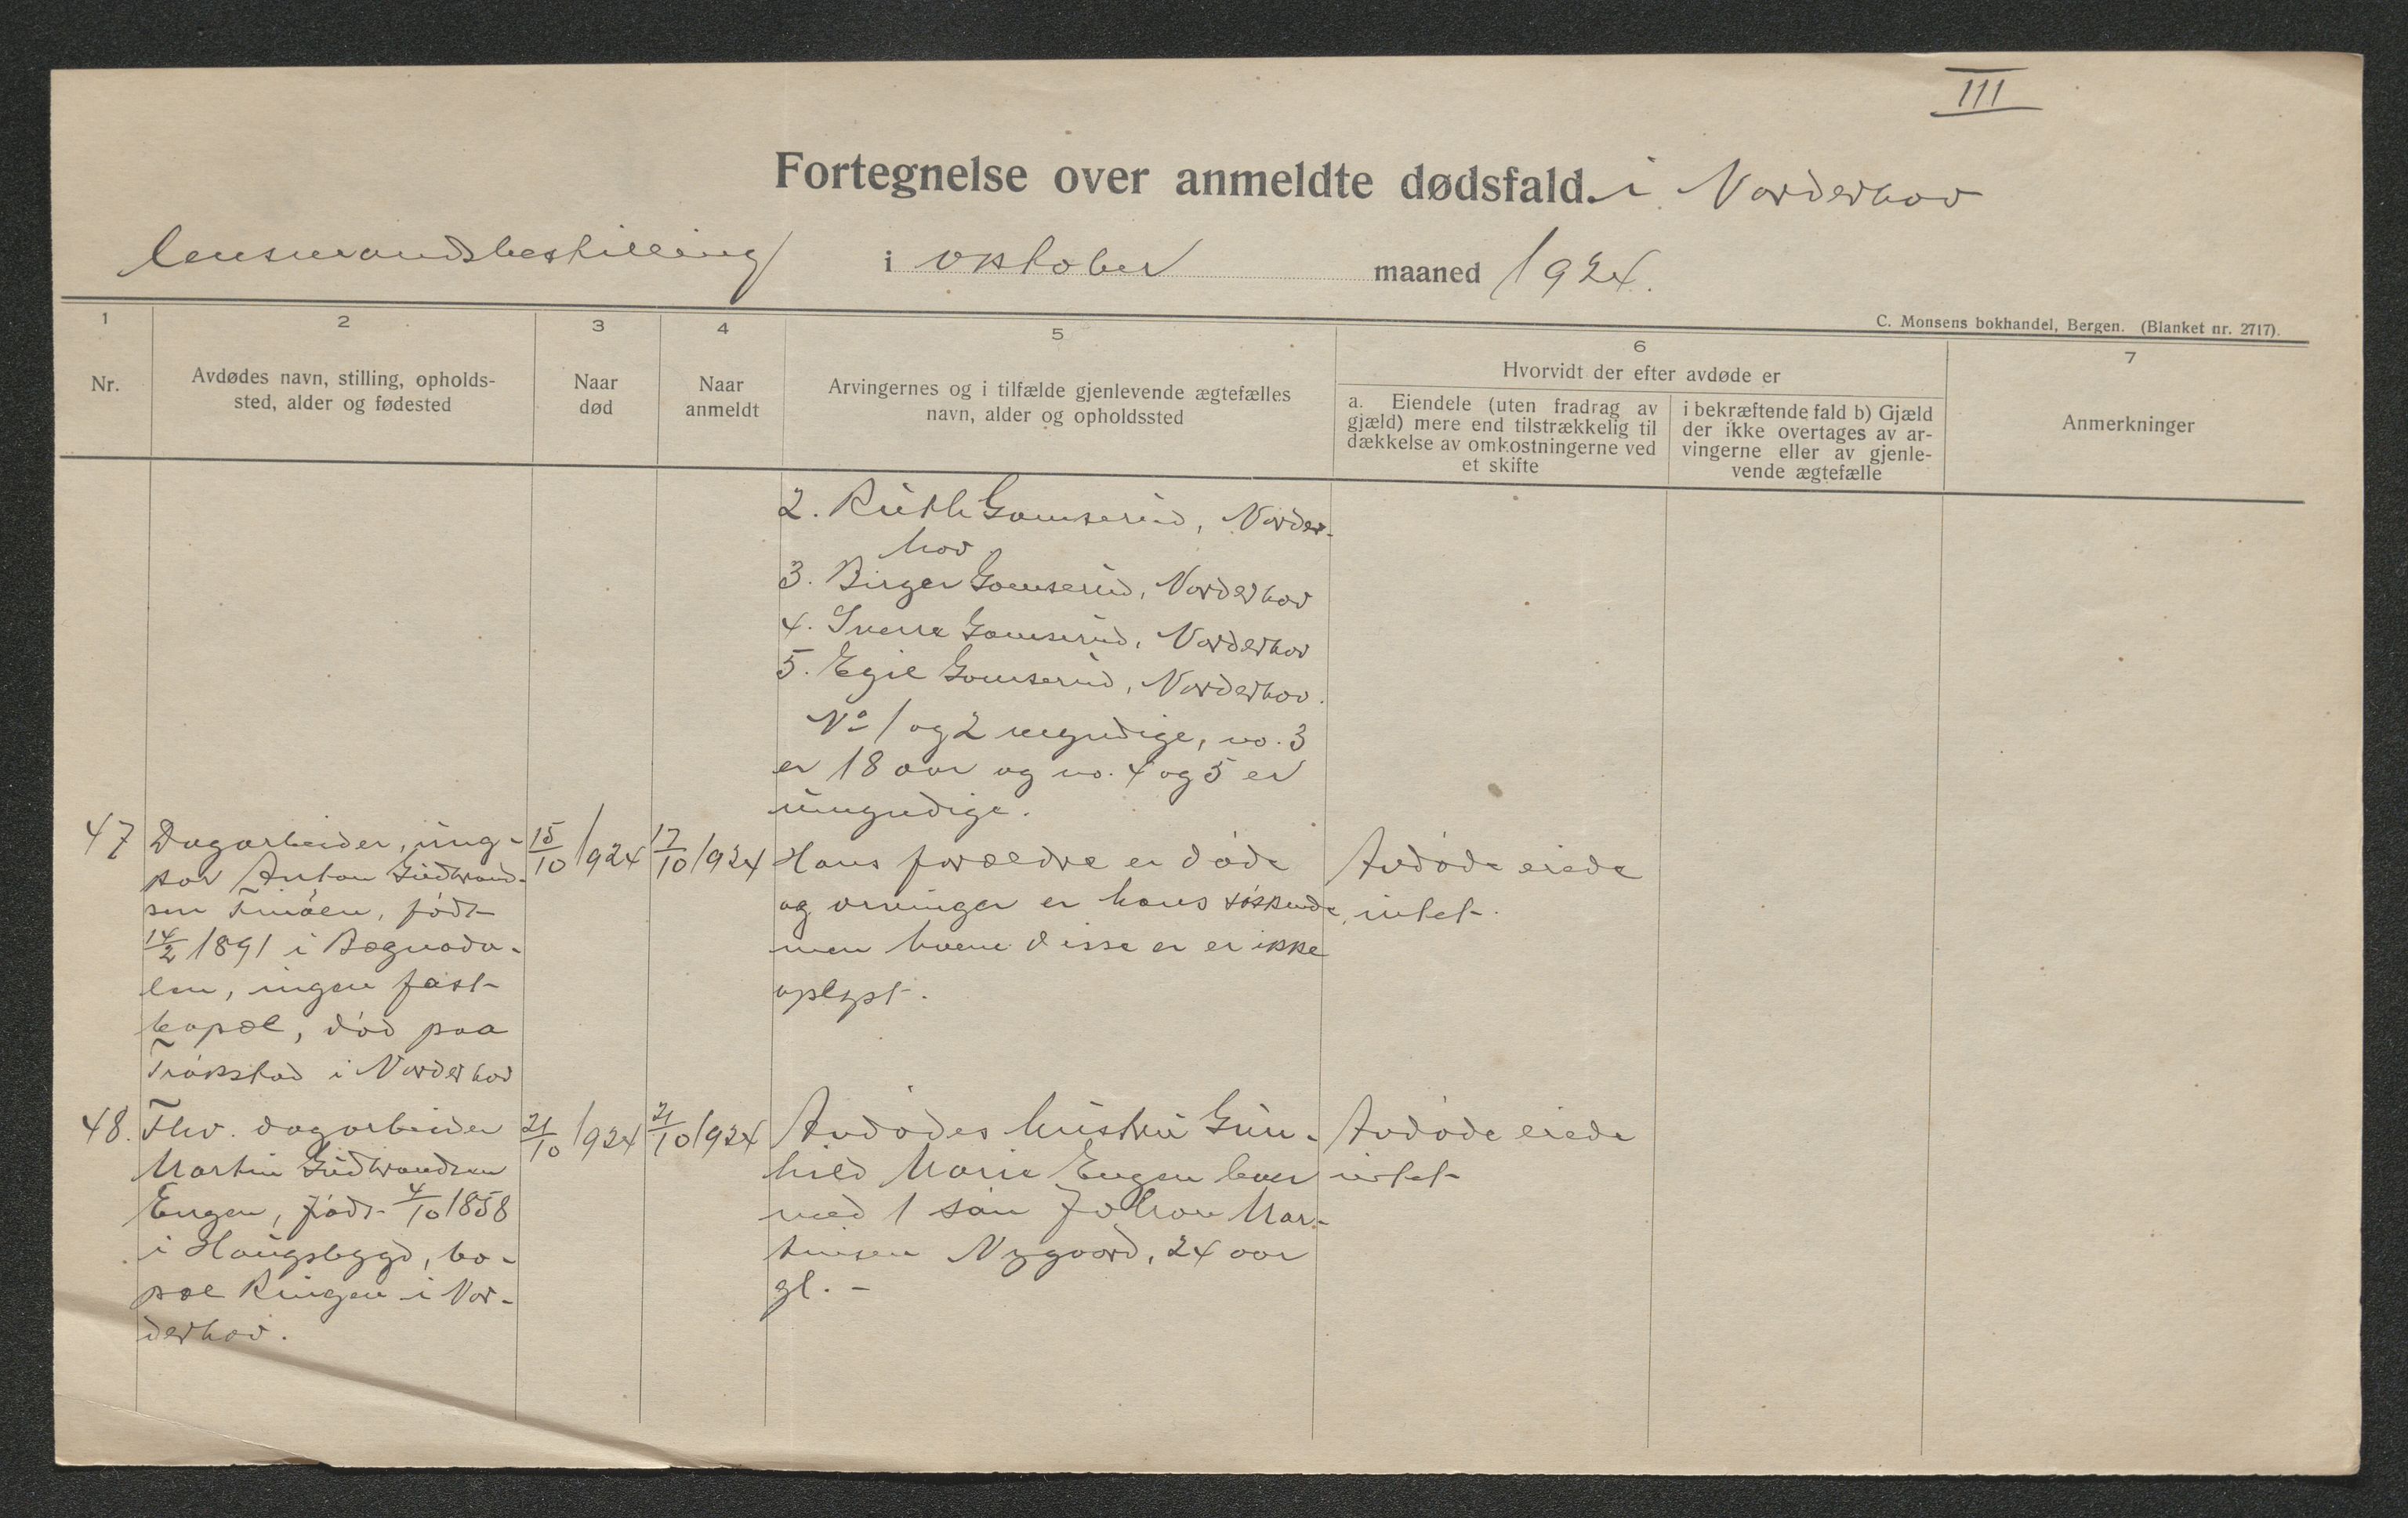 III
Fortegnelse over anmeldte dødsfald. i Norderhov
lensmandsbestilling i oktober maaned 1924.
C. Monsens bokhandel, Bergen. (Blanket nr. 2717).
1
Nr.
2
Avdødes navn, stilling, opholds-
sted, alder og fødested
3
Naar
død
4
Naar
anmeldt
5
Arvingernes og i tilfælde gjenlevende ægtefælles
navn, alder og opholdssted
6
Hvorvidt der efter avdøde er
a. Eiendele (uten fradrag av
gjæld) mere end tilstrækkelig til
dækkelse av omkostningerne ved
et skifte
i bekræftende fald b) Gjæld
der ikke overtages av ar-
vingerne eller av gjenle-
vende ægtefælle
7
Anmerkninger
2. Ruth Gomserud, Norder-
hov
3. Birger Gomserud, Norderhov
4. Sverre Gomserud, Norderhov
5. Egil Gomserud, Norderhov.
No 1 og 2 myndige, no. 3
er 18 aar og no. 4 og 5 er
umyndige.
47
Dagarbeider, ung-
kar Anton Gudbrand-
sen født
14/2 1891 i Begnada-
len, ingen fast
bopæl, død paa
Trøkstad i Norderhov
15/10 1924
17/10 1924
Hans forældre er døde
og arvinger er hans søskende,
men hvem disse er er ikke
oplyst.
Avdøde eiede
intet.
48.
Fhv. dagarbeider
Martin Gudbrandsen
Engen, født 4/10 1858
i Haugsbygd, bo-
pæl Ringen i Nor-
derhov.
21/10 1924
21/10 1924
Avdødes hustru Gun-
hild Marie Engen lever
med 1 søn Johan Mar-
tinsen Nygaard, 24 aar
gl. -
Avdøde eiede
intet